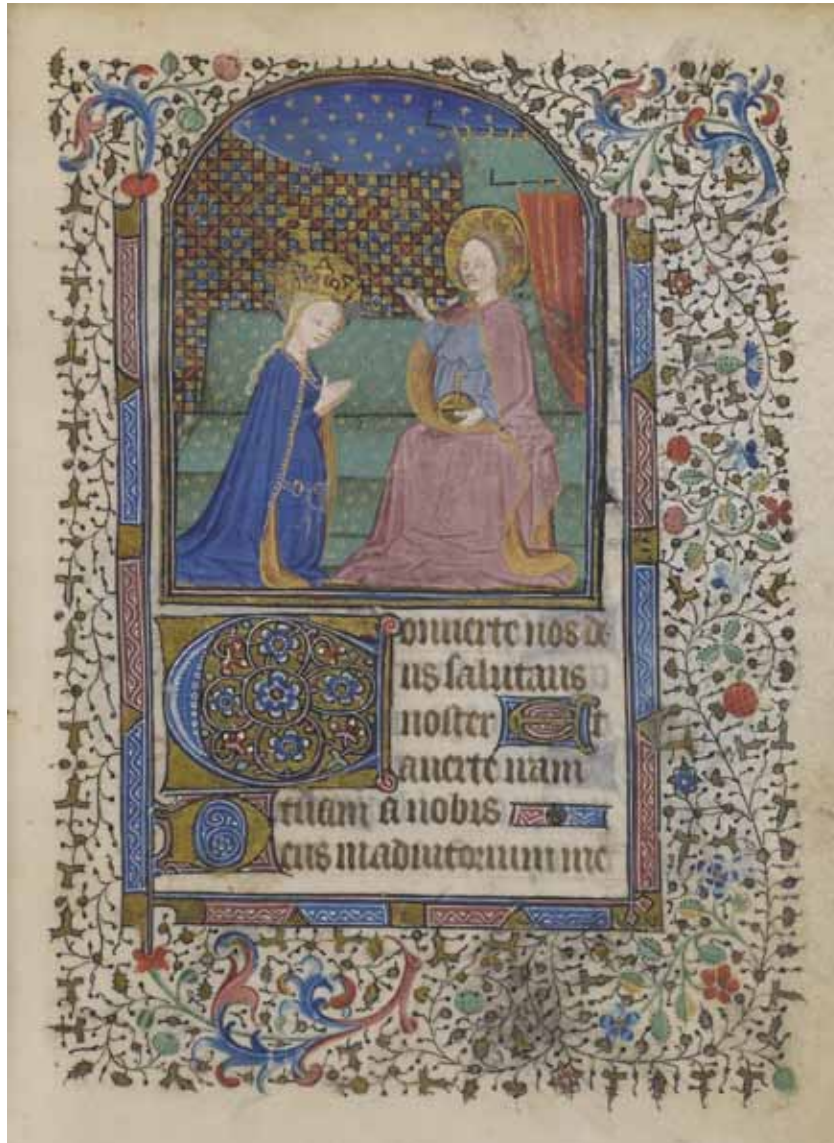 Conuerte nos de
us salutaris
noster Et
auerte iram
tuam a nobis
Deus in adiutorium me